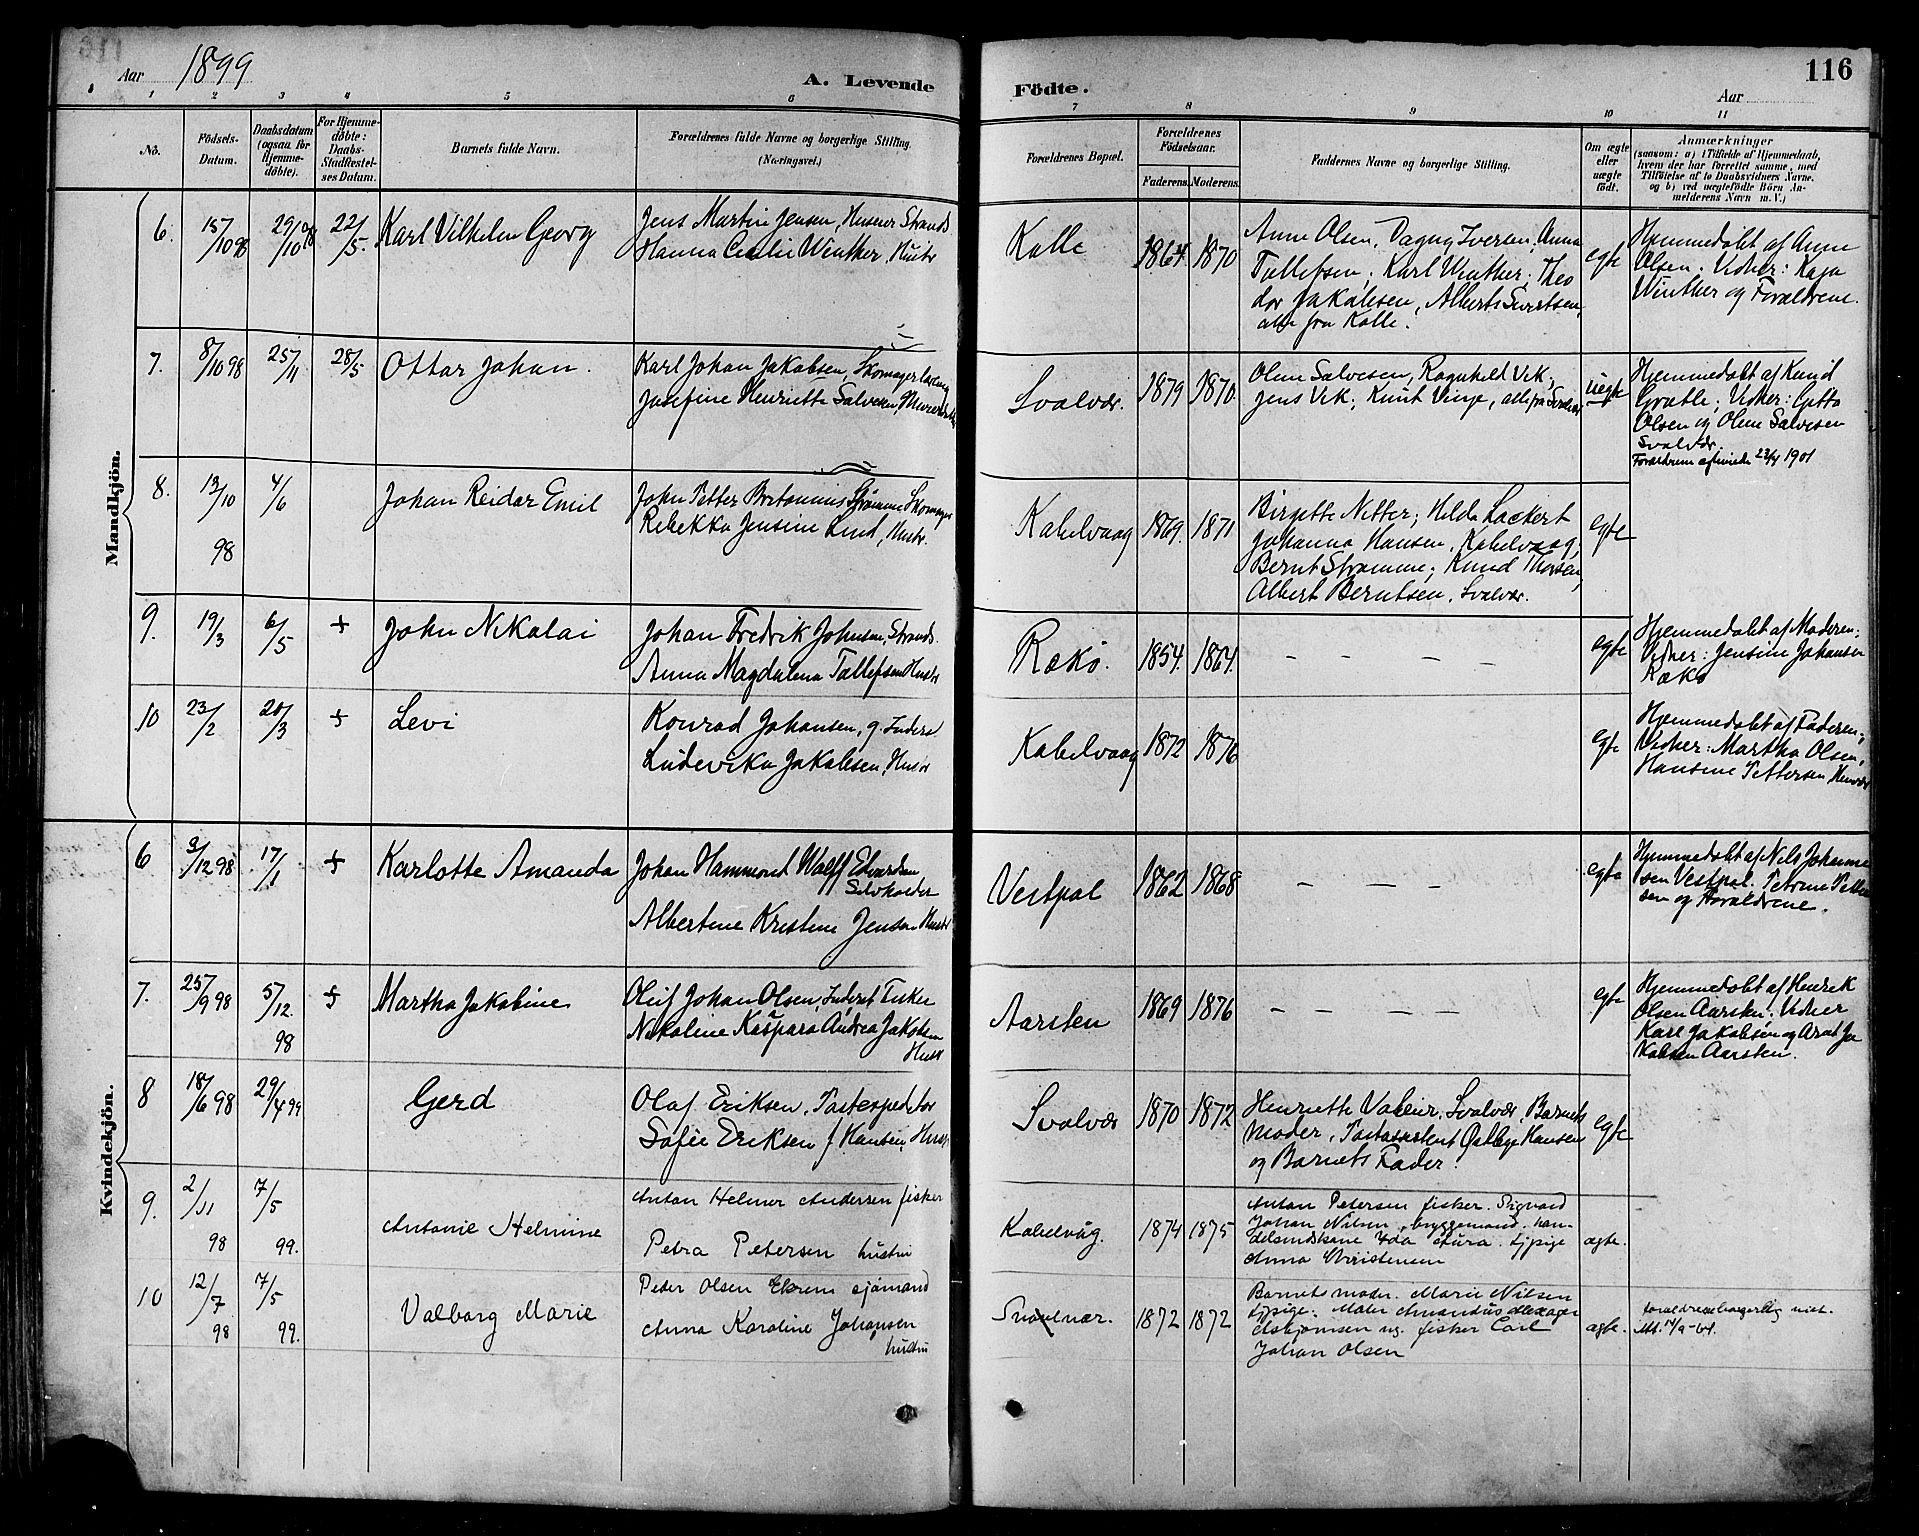 116
Aar 1899
A. Levende Födte.
Aar
1 2 3 4 5 6 7 8 9 10 11
No.
Födsels-Datum.
Daabsdatum (ogsaa for Hjemme-døbte).
For Hjemme-døbte: Daabs-Stadfæstel-ses Datum.
Barnets fulde Navn.
Forældrenes fulde Navne og borgerlige Stilling. (Næringsvei.)
Forældrenes Bopæl.
Forældrenes Födselsaar.
Faderens. Moderens.
Faddernes Navne og borgerlige Stilling.
Om ægte eller uægte født.
Anmærkninger
(saasom: a) i Tilfælde af Hjemmedaab,
hvem der har forrettet samme, med
Tilföielse af to Daabsvidners Navne.
og b) ved uægtefødte Börn An-
melderens Navn m. V.)
Mandkjön.
6. 15/10 98 29/10 98 22/5. Karl Vilhelm Georg
Jens Martin Jensen, Husmer Strands
Hanna Cecilie Winther, Hustr
Kalle 1864 1870
Anne Olsen, Dagny Iversen, Anna
Tollefsen; Karl Winther; Theo
dor Jakobsen, Alberts Sivertsen,
alle fra Kalle.
egte
Hjemmedøbt af Anne
Olsen. Vidner: Kaja
Winther og Forældrene.
7. 8/10 98 25/11 28/5 Ottar Johan.
Karl Johan Jakobsen, Skomager
Josefine Henriette Salvesen,
Svolvær. 1879 1870.
Oline Salvesen, Ragnhild Vik,
Jens Vik; Knut Vinje, alle fra Svolvær
uegte
Hjemmedøbt af Knud
Grætle; Vidner: Gitta
Olsen og Oline Salvesen
Svolvær.
Forældrene 23/4 1901
8. 13/10 98 4/6 Johan Reidar Emil
John Petter Strømme Skomager
Rebekka Jensine Lind, Hustr.
Kabelvaag 1869. 1871
Birgitte Netter; Hilda Lockert
Johanna Hansen, Kabelvaag;
Bernt Strømme; Knud Thorsen,
Albert Berntsen, Svolvær.
egte
9. 19/3 6/5 + John Nikolai
Johan Fredrik Johnsen, Strands.
Anna Magdalena Tollefsen Hustr
Rækø. 1854. 1864. — — — —
egte
Hjemmedøbt af Moderen;
Vidner: Jensine Johansen
Rækø
10 23/2 20/3 + Levi
Konrad Johansen, g. Inders
Ludevika Jakobsen, Hustr
Kabelvaag 1872 1876
egte
Hjemmedøbt af Faderen;
Vidner: Martha Olsen,
Hansine Pettersen
Kvindekjön.
6 3/12 98 17/1 + Karlotte Amanda
Johan Hammond Wolff Edvardsen
Selvkoeder
Albertine Kristine Jensen Hustr
Vestpol 1862 1868 — — —
egte
Hjemmedøbt af Nils Johanne
sen Vestpol. Petrine Petter
sen og Forældrene.
7. 25/9 98 5/12. 98 + Martha Jakobine
Oluf Johan Olsen, Inderst Fisker
Nikoline Kaspara Andrea Jakobsen
Hustr
Aarsten 1869 1876 — — — —
egte
Hjemmedøbt af Henrik
Olsen Aarsten; Vidner
Karl Jakobsen og Arnt Ja
kobsen Aarsten.
8 18/6 98 29/4 99 Gerd
Olaf Eriksen, Postexpeditør
Sofie Eriksen f. Hansen, Hustr
Svolvær 1870 1872
Henriette Valeur, Svolvær, Barnets
Moder, Postassistent Østbye Hansen
og Barnets Fader.
egte
9. 2/11 98 7/5 99. Antonie Helmine
Anton Helmer Andersen fisker
Petra Petersen hustru
Kabelvåg. 1874 1875
Anton Petersen fisker. Sigvard
Johan Nilsen, bryggemand. han-
delsmdskone Ida Aura. tjpige
Anna Kristensen
ægte.
10 12/7 98 7/5 99. Valborg Marie
Peder Olsen Ekrem sjömand
Anna Karoline Johansen
hustru
Svolvær. 1872 1872
Barnets moder. Marie Nilsen
tjpige. Maler Amandus
Asbjörnsen og fisker Carl
Johan Olsen
ægte.
foreldrene borgerlig viet.